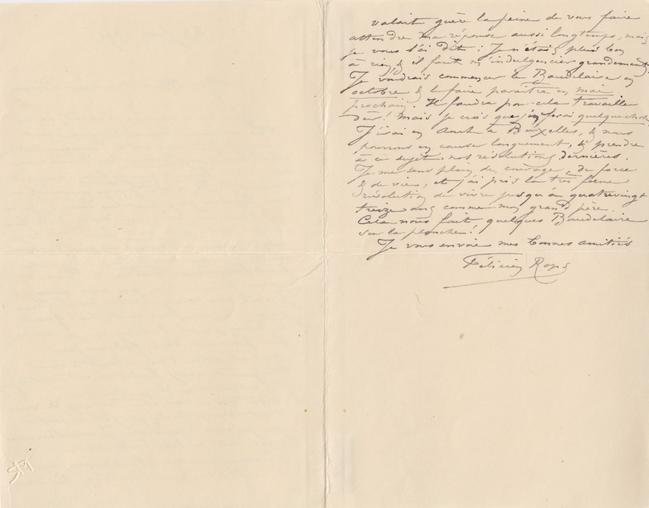 valait guère la peine de vous faire
attendre ma réponse aussi longtemps, mais
je vous l'ai dit : Je n'étais plus bon
à rien, & il faut m'indulgencier grandement.
Je voudrais commencer le Baudelaire en
octobre & le faire paraître en mai
prochain. Il faudra pour cela travailler
dur! mais je crois que j'en ferai quelque chose.
J'irai en août à Bruxelles, & nous
pourrons en causer longuement, & prendre
à ce sujet nos résolutions dernières.
Je me sens plein de courage, de force
& de vie, et j'ai pris la très ferme
résolution de vivre jusqu'à quatrevingt
treize ans comme mon grand père.
Cela nous fait quelques Baudelaire
sur la planche!
Je vous envoie mes bonnes amitiés
Félicien Rops